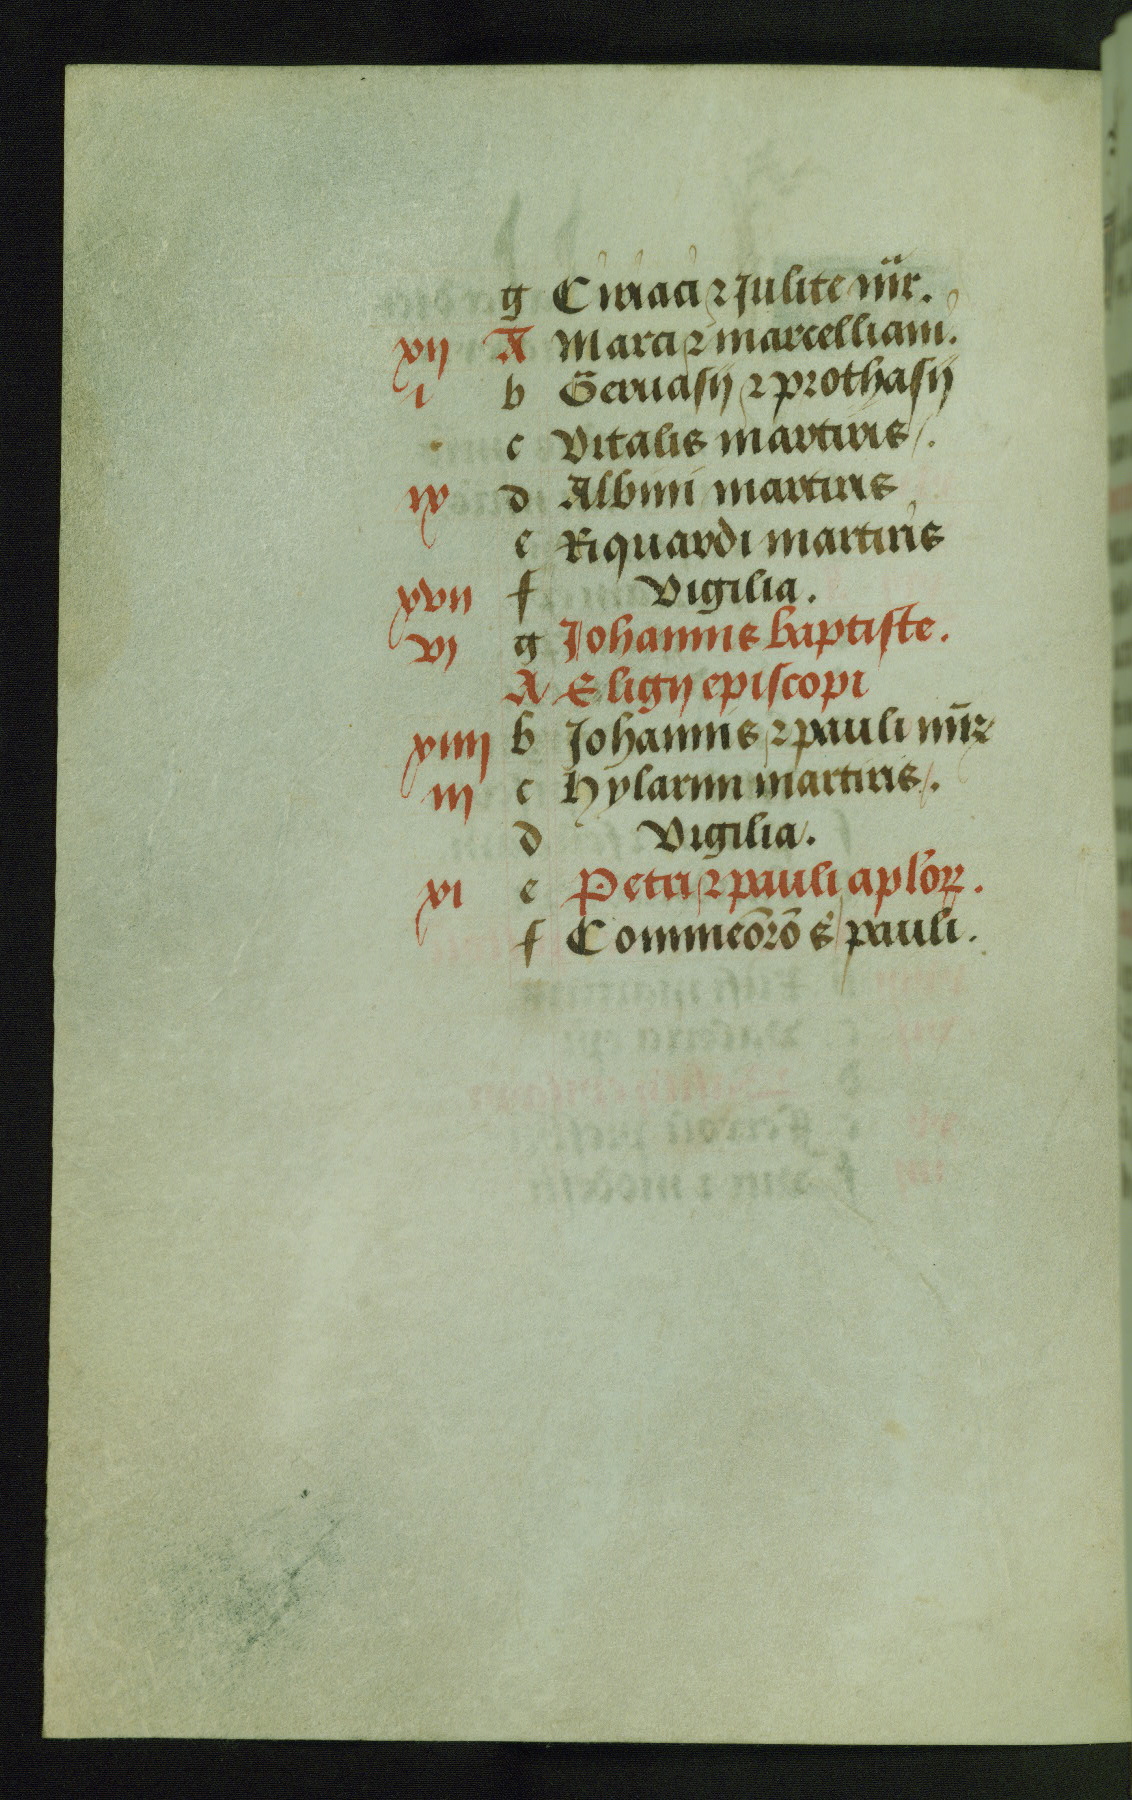 g Ciriaci ⁊ Julite mr̄.
xij A Marci ⁊ marcelliani.
i b Geruasij ⁊ prothasij
c Vitalis martiris.
ix d Albini martiris
e Riquardi martiris
xvii f Vigilia.
vi g Johannis baptiste.
A Eligij episcopi
xiiii b Johannis ⁊ pauli mr̄
iii c Hylarini martiris.
d Vigilia.
xi e Petri ⁊ pauli aplōꝝ.
f Commeōrō s̄ pauli.